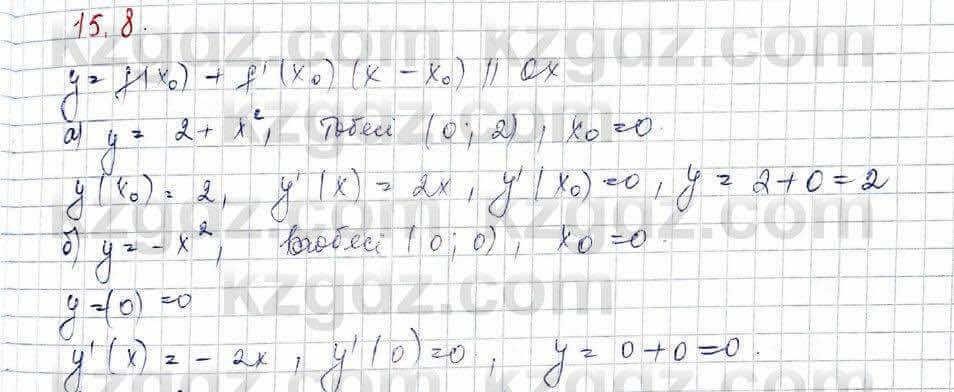 15.8.
y = f(x₀) + f'(x₀) (x - x₀) || OX
а) y = 2 + x², төбесі (0; 2), x₀ = 0.
y(x₀) = 2, y'(x) = 2x, y'(x₀) = 0, y = 2 + 0 = 2
б) y = - x², төбесі (0; 0), x₀ = 0.
y = (0) = 0
y'(x) = - 2x, y'(0) = 0, y = 0 + 0 = 0.
kzgdz.com kzgdz.com
kzgdz.com kzgdz.com
kzgdz.com kzgdz.com
kzgdz.com kzgdz.com